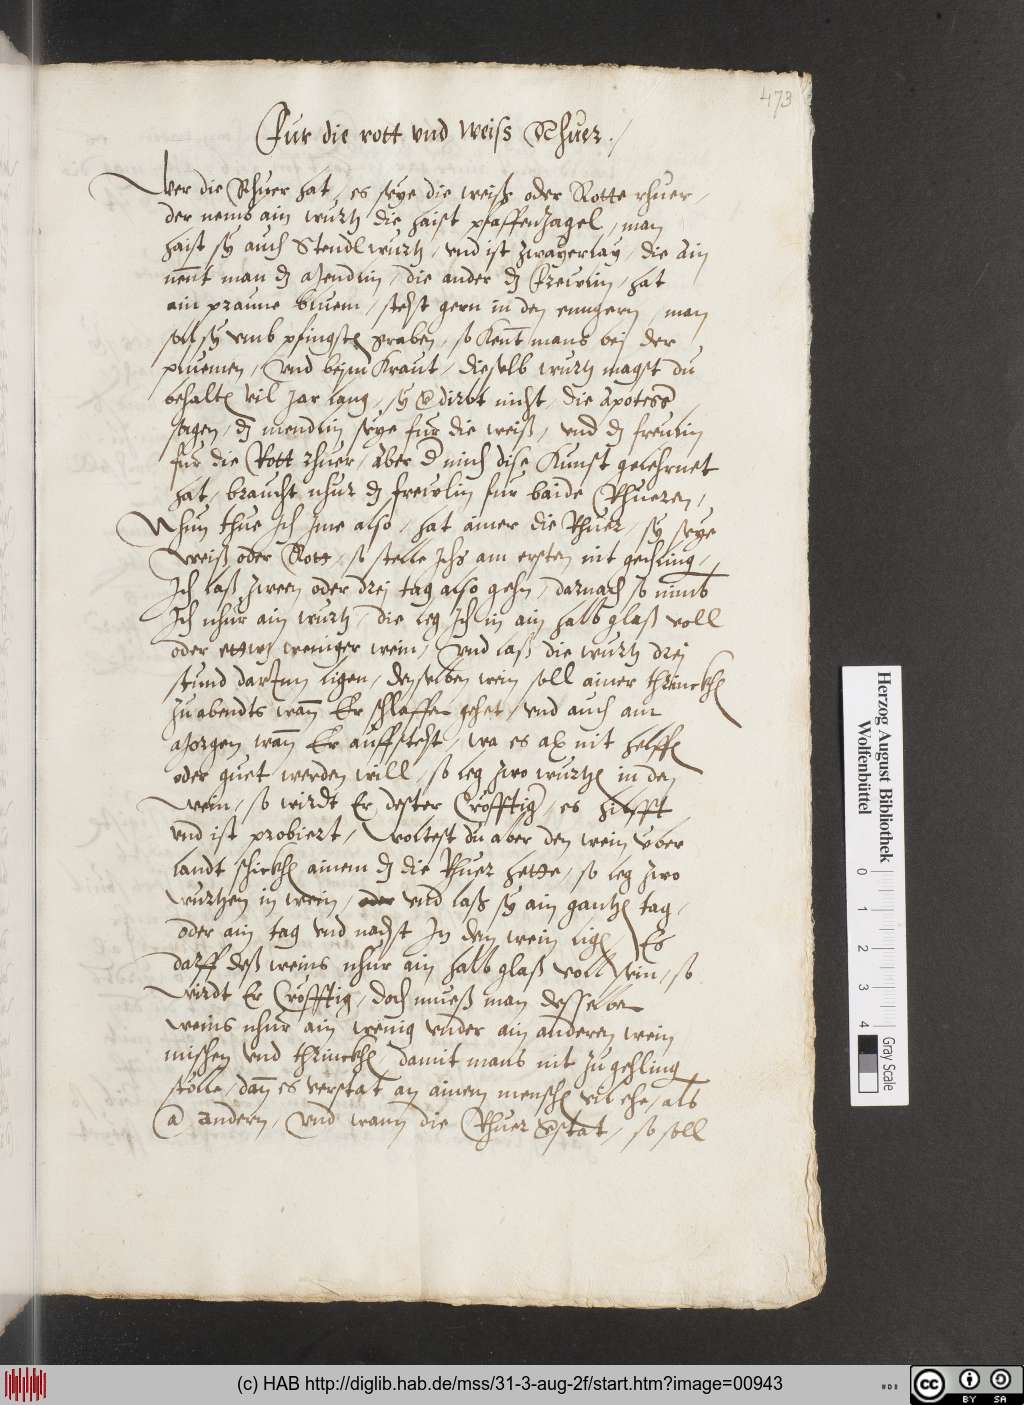 473
Fur die rott vnd Weiss Rhuer ./
Wer die Rhuer hat / es seye die weiß oder Rotte rhuer /
der nemb ain wurtz die haist pfaffenzagel / man
haist sy auch Stendlwurtz / vnd ist zwayerlay / die ain
nent man dz Mendlin / die ander dz Frewlin / hat
ain praune bluem / stehst gern in den enngern / man
soll sy vmb pfingsten graben / so kent mans bej der
pluemen / Vnd beim Kraut / dieselb wurtz magst du
behalten vil Jar lang / sy verdirbt nicht / die Apoteker
sagen / dz mendlin seye fur die weiß / vnd dz freulin
fur die Rott rhuer / aber der mich dise Kunst gelehrnet
hat / braucht nhur dz frewlin fur baide Rhueren /
Nhun thue Ich Ime also / hat ainer die Rhuer / sy seye
weiß oder Rott / so stelle Ichs am ersten nit gechling /
Ich laß zween oder drej tag also gehn / darnach so nimb
Ich nhur ain wurtz / die leg Ich in ain halb glaß voll
oder ettwz weniger wein / Vnd laß die wurtz drej
stund darInn ligen / denselben wein soll ainer thrinckhen
zu abendts wann Er schlaffen gehet / vnd auch am
Morgen wann Er auffsteht / wa es nit helffen
oder guet werden will / so leg zwo wurtzen in den
wein / so wirdt Er dester Cröfftig / es hilfft
vnd ist probiert / Woltest du aber den wein vber
landt schickhen ainem dz die Rhuer hette / so leg zwo
wurtzen in wein / oder vnd laß sy ain gantzen tag /
oder ain tag vnd nacht In dem wein ligen / Es
darff deß weins nhur ain halb glaß voll sein / so
wirdt Er Cröfftig / doch mueß man desselben
weins nhur ain wenig vnder ain anderen wein
mischen vnd thrinckhen / damit mans nit zu gehling
stölle / dann es verstat an ainem menschen vil ehe / als
am andern / Vnd wann die Rhuer verstat / so soll
Herzog August Bibliothek
Wolfenbüttel
0 1 2 3 4
Gray Scale
(c) HAB http://diglib.hab.de/mss/31-3-aug-2f/start.htm?image=00943
cc BY SA